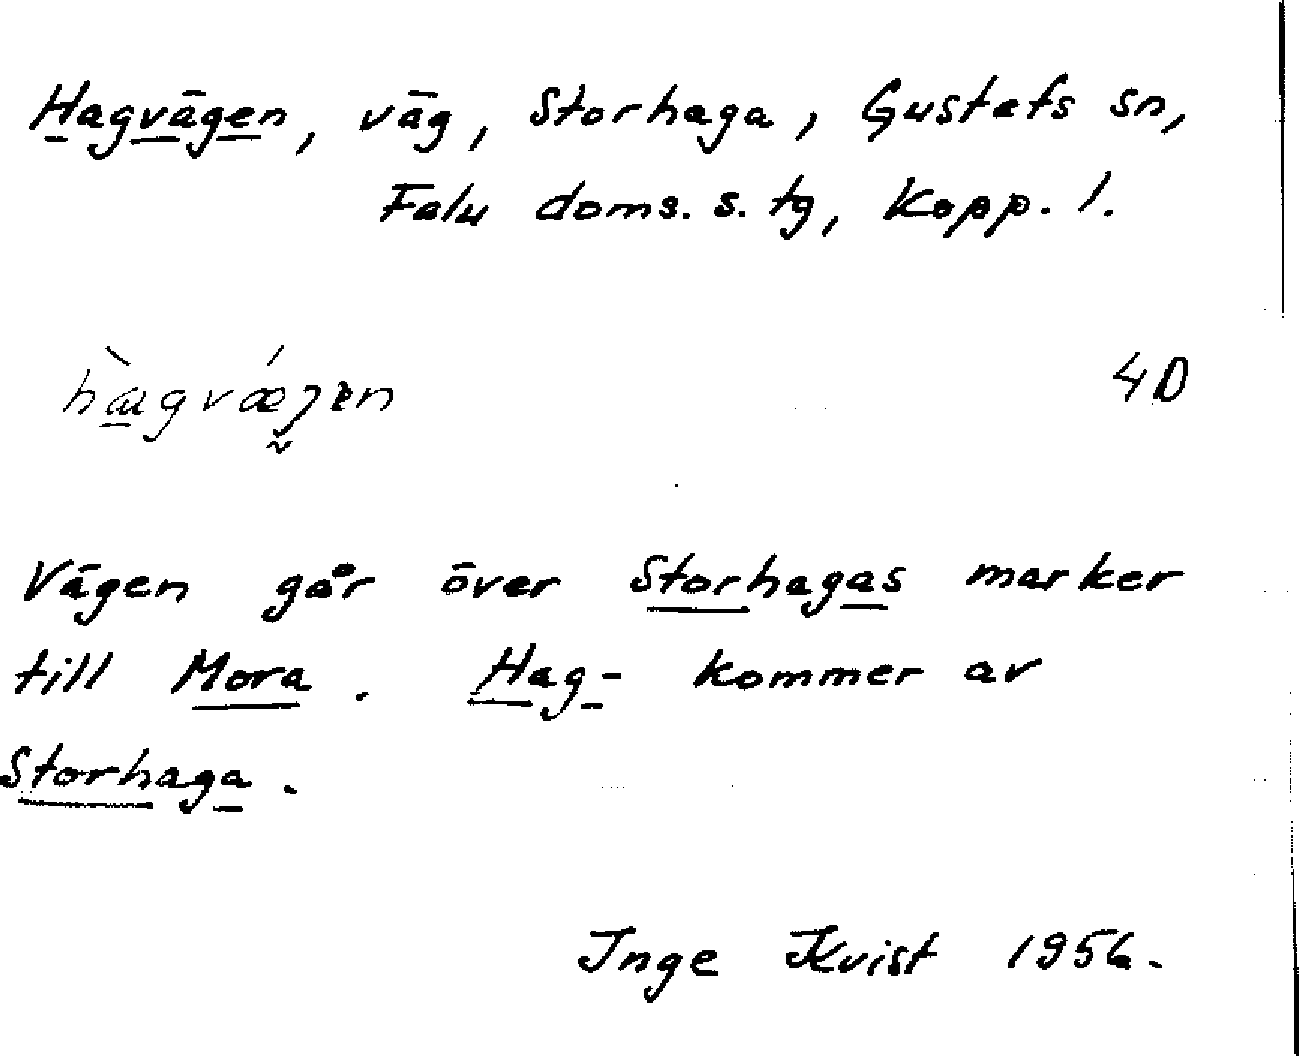 Hagvägen, väg, Storhaga, Gustafs sn,
Falu doms. s. tg, Kopp. l.
4D
Vägen går över Storhagas marker
till Mora. Hag- kommer av
Storhaga.
Inge Kvist 1956.